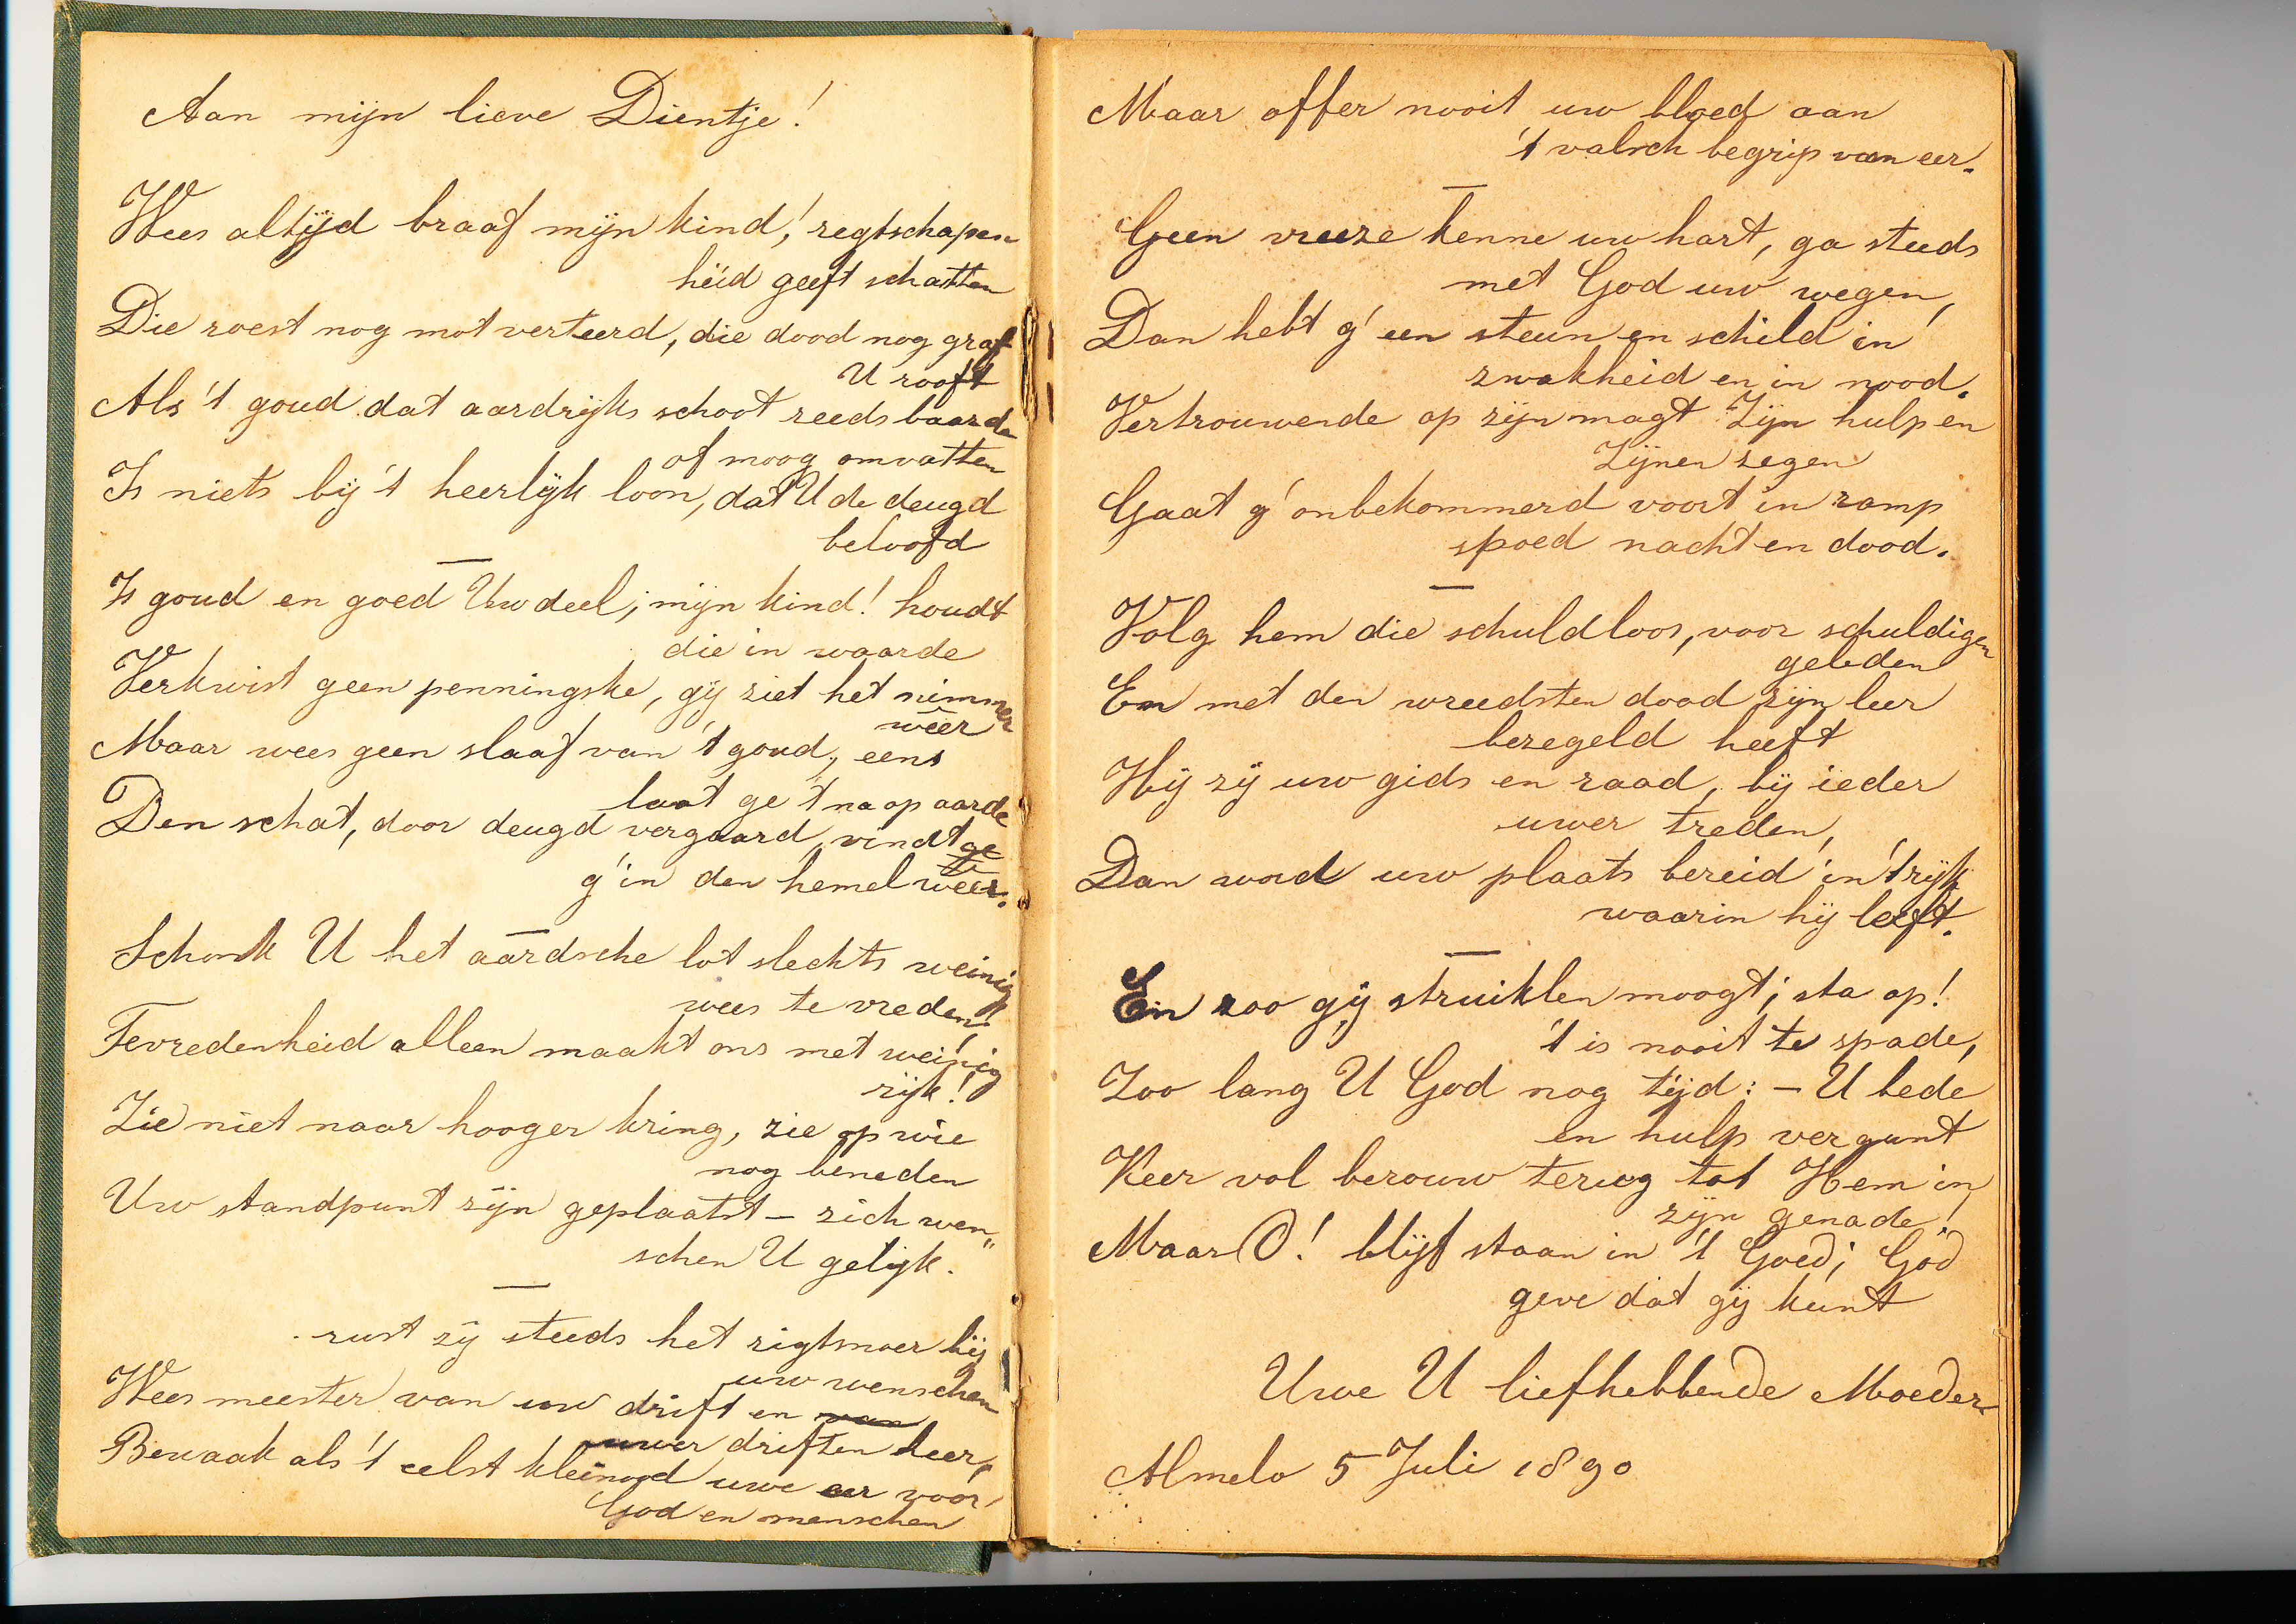 Aan mijn lieve Dientje!
Wees altijd braaf mijn kind,! regtschapen
heid geeft schatten
Die roest nog mot verteerd, die dood nog graf
U rooft
Als 't goud dat aardrijks schoot reeds baarde
of moog omvatten
Is niets bij 't heerlijk loon, dat U de deugd
beloofd
—
Is goud en goed Uw deel; mijn kind! houdt
die in waarde
Verkwist geen penningske, gij ziet het nimmer
wêer
Maar wees geen slaaf van 't goud, eens
laat ge 't na op aarde
Den schat, door deugd vergaard, vindt ge
g' in den hemel weer.
—
Schonk U het aardsche lot slechts weinig
wees te vreden!
Tevredenheid alleen maakt ons met weinig
rijk!
Zie niet naar hooger kring, zie op wie
nog beneden
Uw standpunt zijn geplaatst — zich wen„
schen U gelijk.
—
rust zij steeds het rigtsnoer bij
uw wenschen
Wees meester van uw drift en van
uwer driften heer,
Bewaak als 't eelst kleinood uwe eer voor
God en menschen
Maar offer nooit uw bloed aan
't valsch begrip van eer.
—
Geen vreeze kenne uw hart, ga steeds
met God uw wegen,
Dan hebt g' een steun en schild in
zwakheid en in nood.
Vertrouwende op zijn magt Zijn hulp en
Zijnen zegen
Gaat g' onbekommerd voort in ramp
spoed nacht en dood.
—
Volg hem die schuldloos, voor schuldigen
geleden
En met den wreedsten dood zijn leer
bezegeld heeft
Hij zij uw gids en raad, bij ieder
uwer treden,
Dan word uw plaats bereid in 't rijk
waarin hij leeft.
—
En zoo gij struiklen moogt; sta op!
't is nooit te spade,
Zoo lang U God nog tijd: — U bede
en hulp vergunt
Keer vol berouw terug tot Hem in
zijn genade!
Maar O! blijf staan in 't Goed; God
geve dat gij kunt
Uwe U liefhebbende Moeder
Almelo 5 Juli 1890